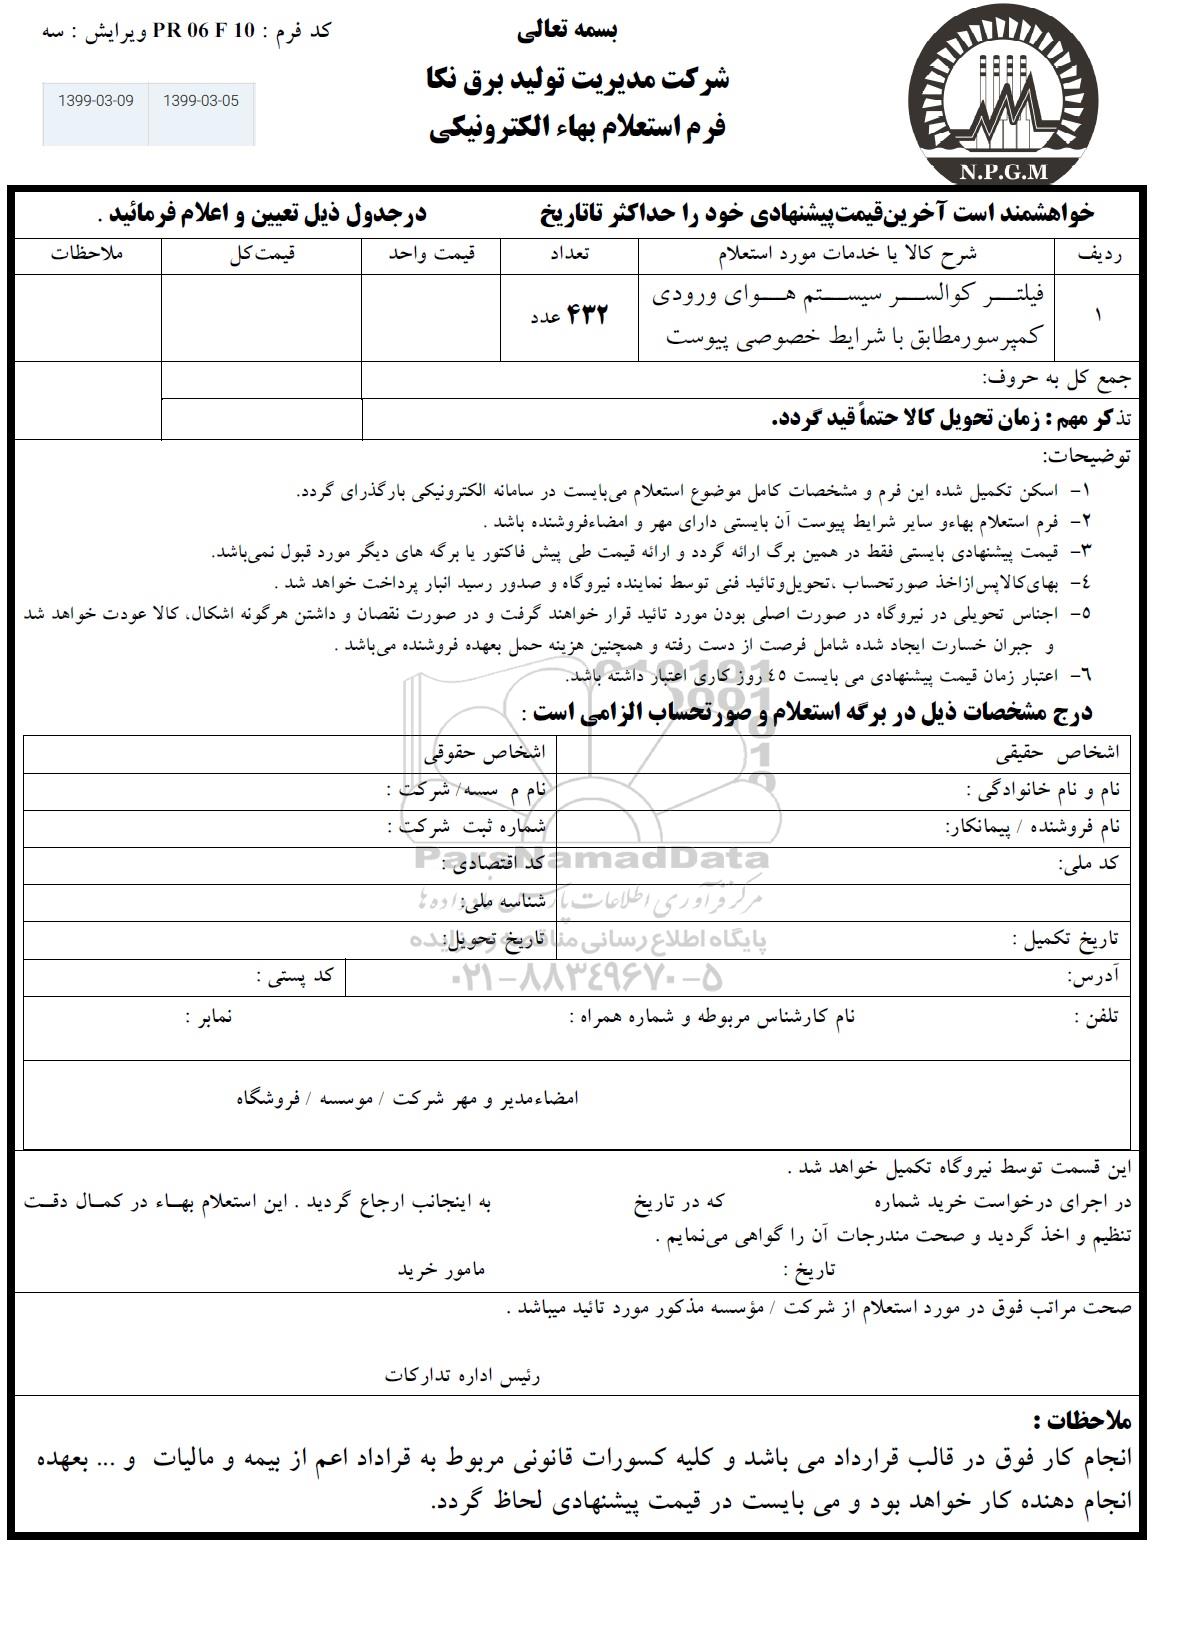 بسمه تعالی
کد فرم : PR 06 F 10 ویرایش : سه
شرکت مدیریت تولید برق نکا
1399-03-09 1399-03-05
فرم استعلام بهاء الکترونیکی
N.P.G.M
خواهشمند است آخرین‌قیمت‌پیشنهادی خود را حداکثر تاتاریخ درجدول ذیل تعیین و اعلام فرمائید .
ردیف شرح کالا یا خدمات مورد استعلام تعداد قیمت واحد قیمت‌کل ملاحظات
۱ فیلتر کوالسر سیستم هوای ورودی ۴۳۲ عدد
کمپرسورمطابق با شرایط خصوصی پیوست
جمع کل به حروف:
تذکر مهم : زمان تحویل کالا حتماً قید گردد.
توضیحات:
۱- اسکن تکمیل شده این فرم و مشخصات کامل موضوع استعلام می‌بایست در سامانه الکترونیکی بارگذرای گردد.
۲- فرم استعلام بهاءو سایر شرایط پیوست آن بایستی دارای مهر و امضاءفروشنده باشد .
۳- قیمت پیشنهادی بایستی فقط در همین برگ ارائه گردد و ارائه قیمت طی پیش فاکتور یا برگه های دیگر مورد قبول نمی‌باشد.
٤- بهای‌کالاپس‌ازاخذ صورتحساب ،تحویل‌وتائید فنی توسط نماینده نیروگاه و صدور رسید انبار پرداخت خواهد شد .
٥- اجناس تحویلی در نیروگاه در صورت اصلی بودن مورد تائید قرار خواهند گرفت و در صورت نقصان و داشتن هرگونه اشکال، کالا عودت خواهد شد
و جبران خسارت ایجاد شده شامل فرصت از دست رفته و همچنین هزینه حمل بعهده فروشنده می‌باشد .
٦- اعتبار زمان قیمت پیشنهادی می بایست ٤٥ روز کاری اعتبار داشته باشد.
درج مشخصات ذیل در برگه استعلام و صورتحساب الزامی است :
اشخاص حقیقی اشخاص حقوقی
نام و نام خانوادگی : نام م سسه/ شرکت :
نام فروشنده / پیمانکار: شماره ثبت شرکت :
ParsNamadData
کد ملی: کد اقتصادی :
شناسه ملی:
مرکز فرآوری اطلاعات پارس نماد داده ها
تاریخ تکمیل : تاریخ تحویل:
پایگاه اطلاع رسانی مناقصه و مزایده
آدرس: کد پستی :
۰۲۱-۸۸۳۴۹۶۷۰-۵
تلفن : نام کارشناس مربوطه و شماره همراه : نمابر :
امضاءمدیر و مهر شرکت / موسسه / فروشگاه
این قسمت توسط نیروگاه تکمیل خواهد شد .
در اجرای درخواست خرید شماره که در تاریخ به اینجانب ارجاع گردید . این استعلام بهاء در کمال دقت
تنظیم و اخذ گردید و صحت مندرجات آن را گواهی می‌نمایم .
تاریخ : مامور خرید
صحت مراتب فوق در مورد استعلام از شرکت / مؤسسه مذکور مورد تائید میباشد .
رئیس اداره تدارکات
ملاحظات :
انجام کار فوق در قالب قرارداد می باشد و کلیه کسورات قانونی مربوط به قراداد اعم از بیمه و مالیات و ... بعهده
انجام دهنده کار خواهد بود و می بایست در قیمت پیشنهادی لحاظ گردد.